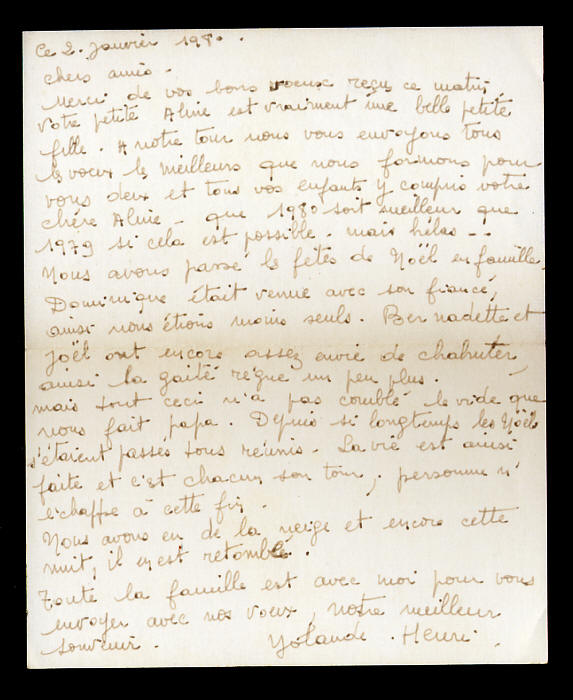 Ce 2. Janvier 1980.
chers amis -
Merci de vos bons voeux reçus ce matin,
votre petite Aline est vraiment une belle petite
fille. A notre tour nous vous envoyons tous
les voeux les meilleurs que nous formons pour
vous deux et tous vos enfants y compris votre
chère Aline - que 1980 soit meilleur que
1979 si cela est possible. mais hélas --
Nous avons passé les fêtes de Noël en famille.
Dominique était venue avec son fiancé,
ainsi nous étions moins seuls. Bernadette et
Joël ont encore assez envie de chahuter,
ainsi la gaité règne un peu plus.
mais tout ceci n'a pas comblé le vide que
nous fait papa. Depuis si longtemps les Noëls
s'étaient passés tous réunis. La vie est ainsi
faite et c'est chacun son tour, personne n'
échappe à cette fin.
Nous avons eu de la neige et encore cette
nuit, il en est retombé.
Toute la famille est avec moi pour vous
envoyer avec nos voeux, notre meilleur
souvenir. Yolande. Henri.